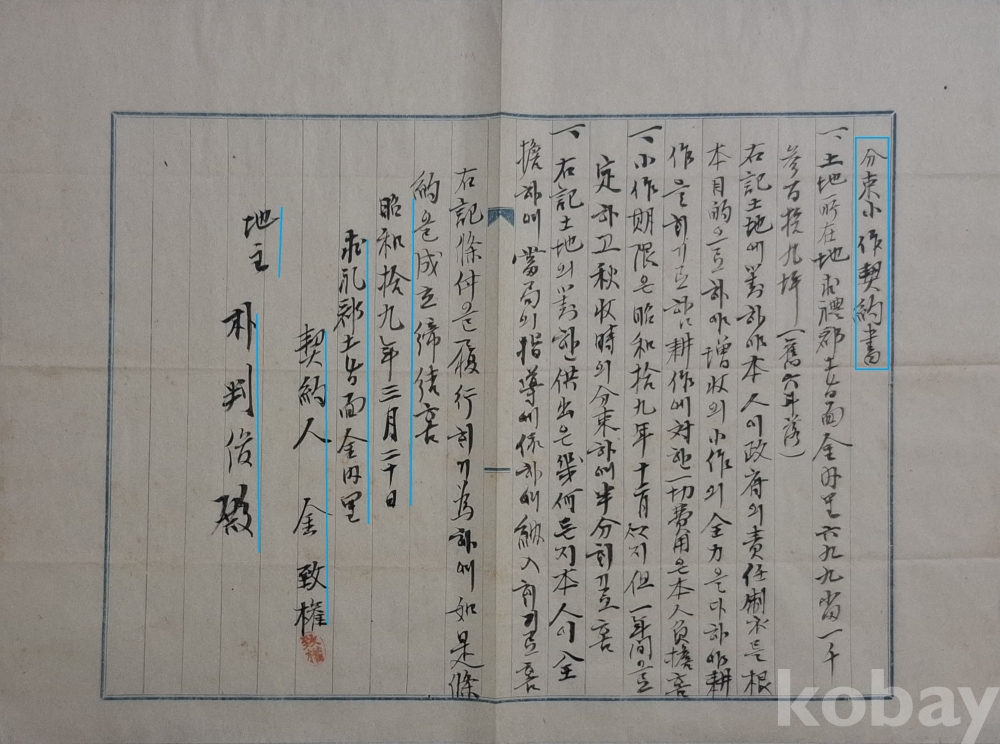 分束小作契約書
一、土地所在地求禮郡土旨面金內里六九九當一千
參百拾九坪(舊六斗落)
右記土地에對하야本人이政府의責任制度를根
本目的으로하야增收의小作의全力을다하야耕
作을하기로하니耕作에対한一切費用은本人負擔홈
一、小作期限은昭和拾九年十二月까지但一年間으로
定하고秋收時의分束하여半分하기로홈
一、右記土地의對한供出은幾何든지本人이全
擔하여當局의指導에依하여納入하기로홈
右記條件을履行하기爲하여如是條
約을成立締結홈
昭和拾九年三月二十日
求礼郡土旨面金內里
契約人 金致權
地主 朴判俊 殿
kobay